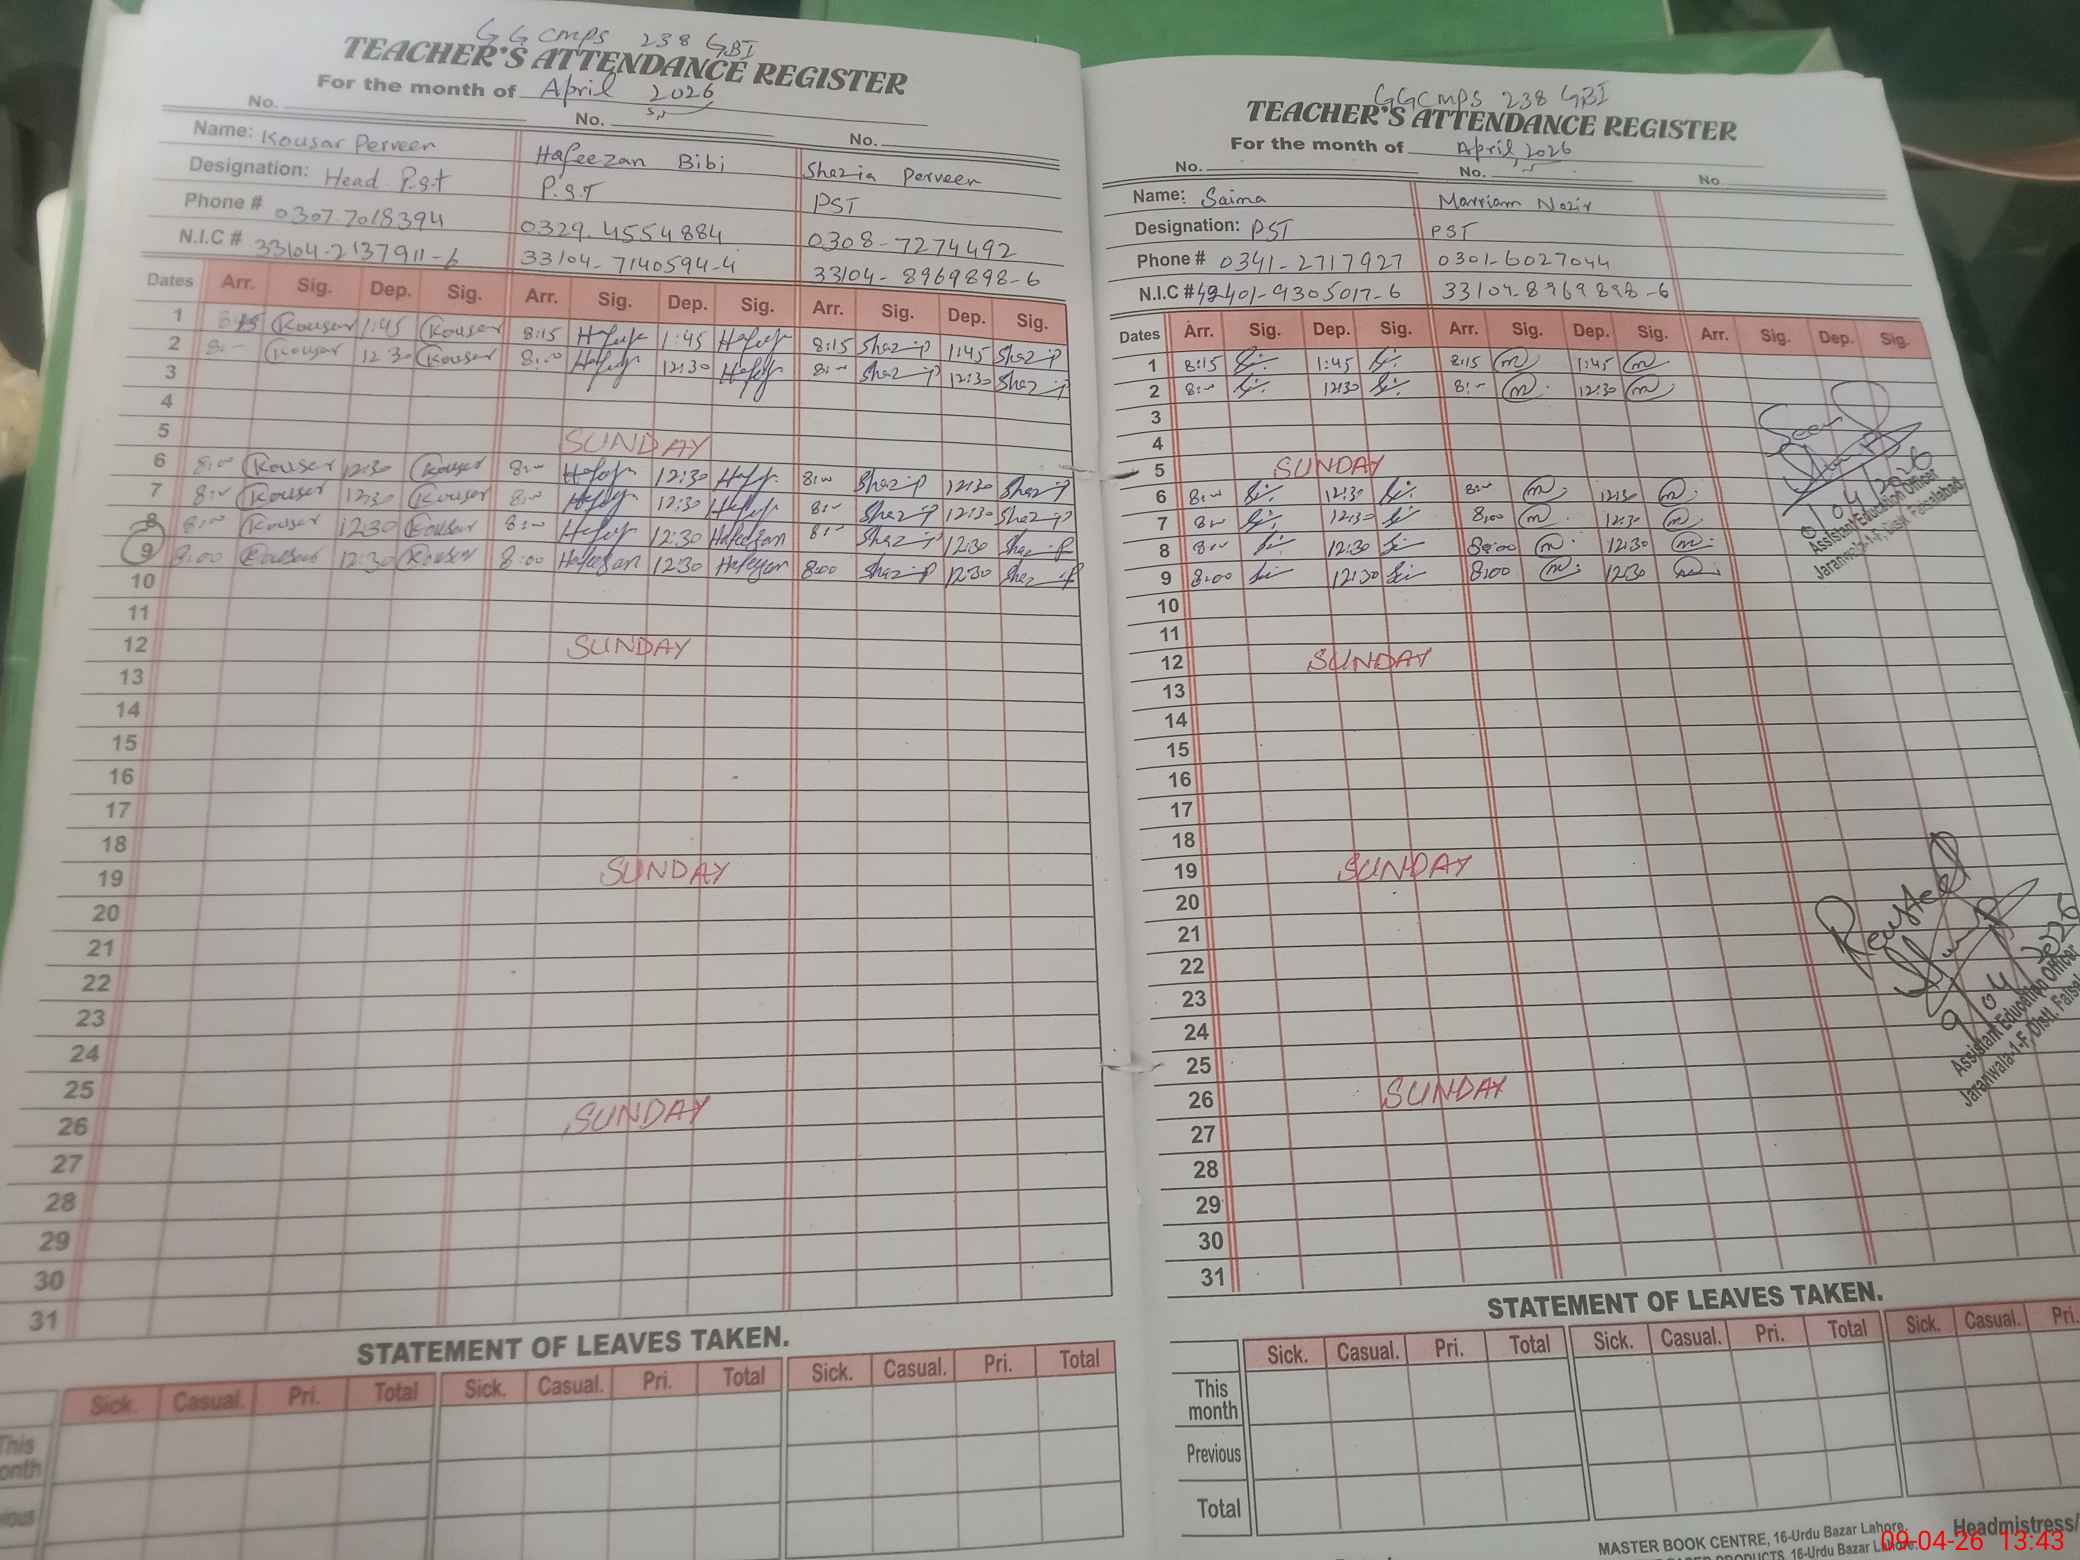 GGCMPS 238 GBI
TEACHER'S ATTENDANCE REGISTER
For the month of April 2026
No. No. No.
Name: Kousar Perveen Hafeezan Bibi Shazia Perveen
Designation: Head P.S.T P.S.T PST
Phone # 0307-7018394 0329-4554884 0308-7274492
N.I.C # 33104-2137911-6 33104-7140594-4 33104-8969898-6
Dates Arr. Sig. Dep. Sig. Arr. Sig. Dep. Sig. Arr. Sig. Dep. Sig.
1 8:15 Kouser 1:45 Kouser 8:15 1:45 8:15 1:45
2 8:- Kouser 12:30 Kouser 8:00 12:30 8:- 12:30
3
4
5 SUNDAY
6 8:00 Kouser 12:30 Kouser 8:00 12:30 8:00 12:30
7 8:- Kouser 12:30 Kouser 8:00 12:30 8:- 12:30
8 8:00 Kouser 12:30 Kouser 8:00 12:30 Hafeezan 8:- 12:30
9 8:00 Kouser 12:30 Kouser 8:00 Hafeezan 12:30 Hafeezan 8:00 12:30
10
11
12 SUNDAY
13
14
15
16
17
18
19 SUNDAY
20
21
22
23
24
25
26 SUNDAY
27
28
29
30
31
STATEMENT OF LEAVES TAKEN.
Sick. Casual. Pri. Total Sick. Casual. Pri. Total Sick. Casual. Pri. Total
This
onth
ious
GGCMPS 238 GBI
TEACHER'S ATTENDANCE REGISTER
For the month of April, 2026
No. No. No.
Name: Saima Marriam Nazir
Designation: PST PST
Phone # 0341-2717927 0301-6027044
N.I.C # 42401-9305017-6 33104-8969898-6
Dates Arr. Sig. Dep. Sig. Arr. Sig. Dep. Sig. Arr. Sig. Dep. Sig.
1 8:15 1:45 8:15 m 1:45 m
2 8:00 12:30 8:- m 12:30 m
3
4
5 SUNDAY
6 8:00 12:30 8:00 m 12:30 m
7 8:00 12:30 8:00 m 12:30 m
8 8:00 12:30 8:00 m 12:30 m
9 8:00 12:30 8:00 m 12:30 m
10
11
12 SUNDAY
13
14
15
16
17
18
19 SUNDAY
20
21
22
23
24
25
26 SUNDAY
27
28
29
30
31
Seen
04/2026
Assistant Education Officer
Jaranwala-1-F, Distt. Faisalabad
9/04/2026
Assistant Education Officer
Jaranwala-1-F, Distt. Faisal
STATEMENT OF LEAVES TAKEN.
Sick. Casual. Pri. Total Sick. Casual. Pri. Total Sick. Casual. Pri.
This
month
Previous
Total
Headmistress/
MASTER BOOK CENTRE, 16-Urdu Bazar Lahore.
PRODUCTS, 16-Urdu Bazar Lahore.
09-04-26 13:43